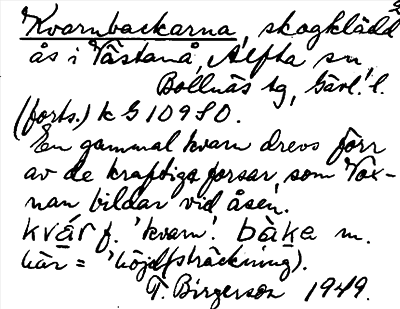 Kvarnbackarna, skogklädd
ås i Västanå, Alfta sn,
Bollnäs tg, Gävl. l.
(forts.) k G 109 S O.
En gammal kvarn drevs förr
av de kraftiga forsar, som Vox-
nan bildar vid åsen.
kvár f. 'kvarn'. bàke m.
här = 'höjd(sträckning).
T. Birgerson 1949.